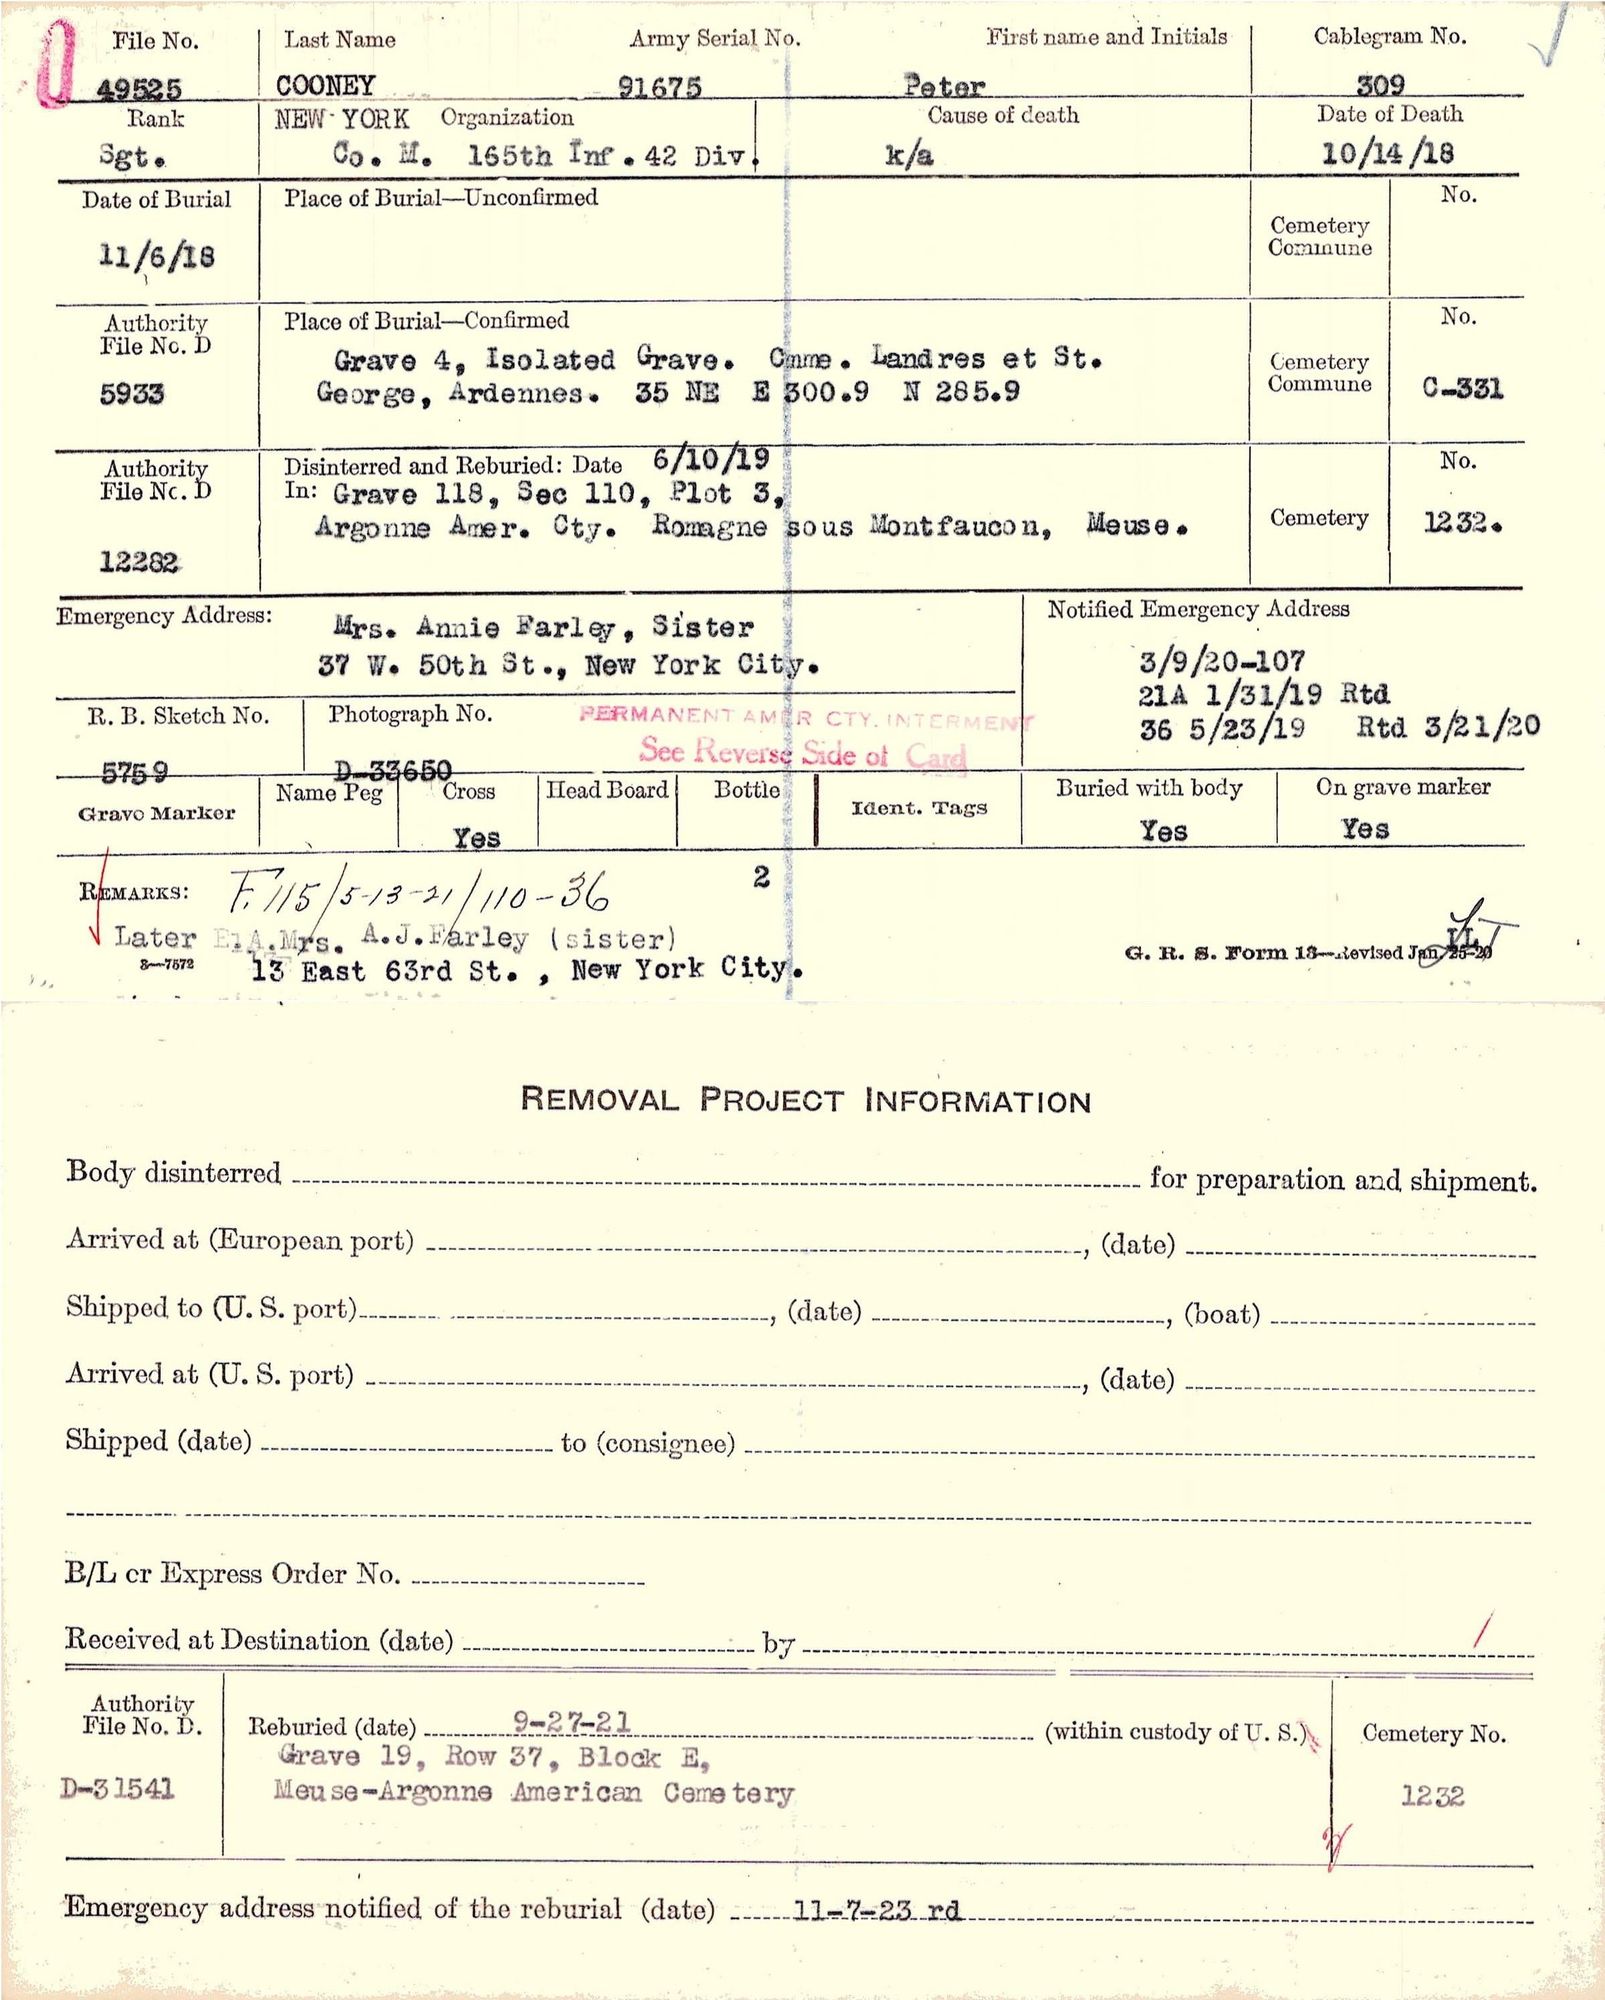 File No. Last Name Army Serial No. First name and Initials Cablegram No.
49525 COONEY 91675 Peter 309
Rank NEW YORK Organization Cause of death Date of Death
Sgt. Co. M. 165th Inf. 42 Div. k/a 10/14/18
Date of Burial Place of Burial—Unconfirmed No.
Cemetery
Commune
11/6/18
Authority Place of Burial—Confirmed No.
File No. D
Grave 4, Isolated Grave. Cmne. Landres et St. Cemetery
5933 George, Ardennes. 35 NE E 300.9 N 285.9 Commune C-331
Authority Disinterred and Reburied: Date 6/10/19 No.
File No. D In: Grave 118, Sec 110, Plot 3,
Argonne Amer. Cty. Romagne sous Montfaucon, Meuse. Cemetery 1232.
12282
Emergency Address: Mrs. Annie Farley, Sister Notified Emergency Address
37 W. 50th St., New York City. 3/9/20-107
21A 1/31/19 Rtd
36 5/23/19 Rtd 3/21/20
R. B. Sketch No. Photograph No. PERMANENT AMER CTY. INTERMENT
See Reverse Side of Card
5759 D-33650
Grave Marker Name Peg Cross Head Board Bottle Ident. Tags Buried with body On grave marker
Yes Yes Yes
REMARKS: F.115/5-13-21/110-36 2
Later E.A. Mrs. A.J. Farley (sister)
3—7572 13 East 63rd St. , New York City. G. R. S. Form 13—Revised Jan. 25-20
REMOVAL PROJECT INFORMATION
Body disinterred for preparation and shipment.
Arrived at (European port) , (date)
Shipped to (U. S. port) , (date) , (boat)
Arrived at (U. S. port) , (date)
Shipped (date) to (consignee)
B/L or Express Order No.
Received at Destination (date) by
Authority
File No. D. Reburied (date) 9-27-21 (within custody of U. S.) Cemetery No.
Grave 19, Row 37, Block E,
D-31541 Meuse-Argonne American Cemetery 1232
Emergency address notified of the reburial (date) 11-7-23 rd